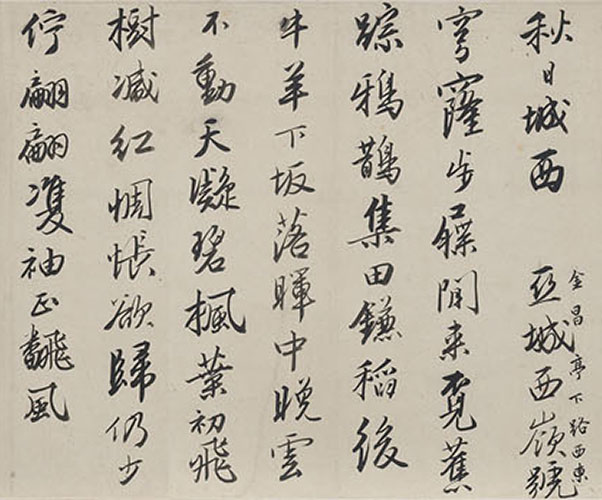 秋日城西
金昌亭下路西東
亞城西嶺號
穹窿步屧閒来覓舊
踪鴉鵲集田鎌稻後
牛羊下坂落暉中晚雲
不動天凝碧楓葉初飛
樹減紅惆悵欲歸仍少
佇翩翩雙袖正飜風